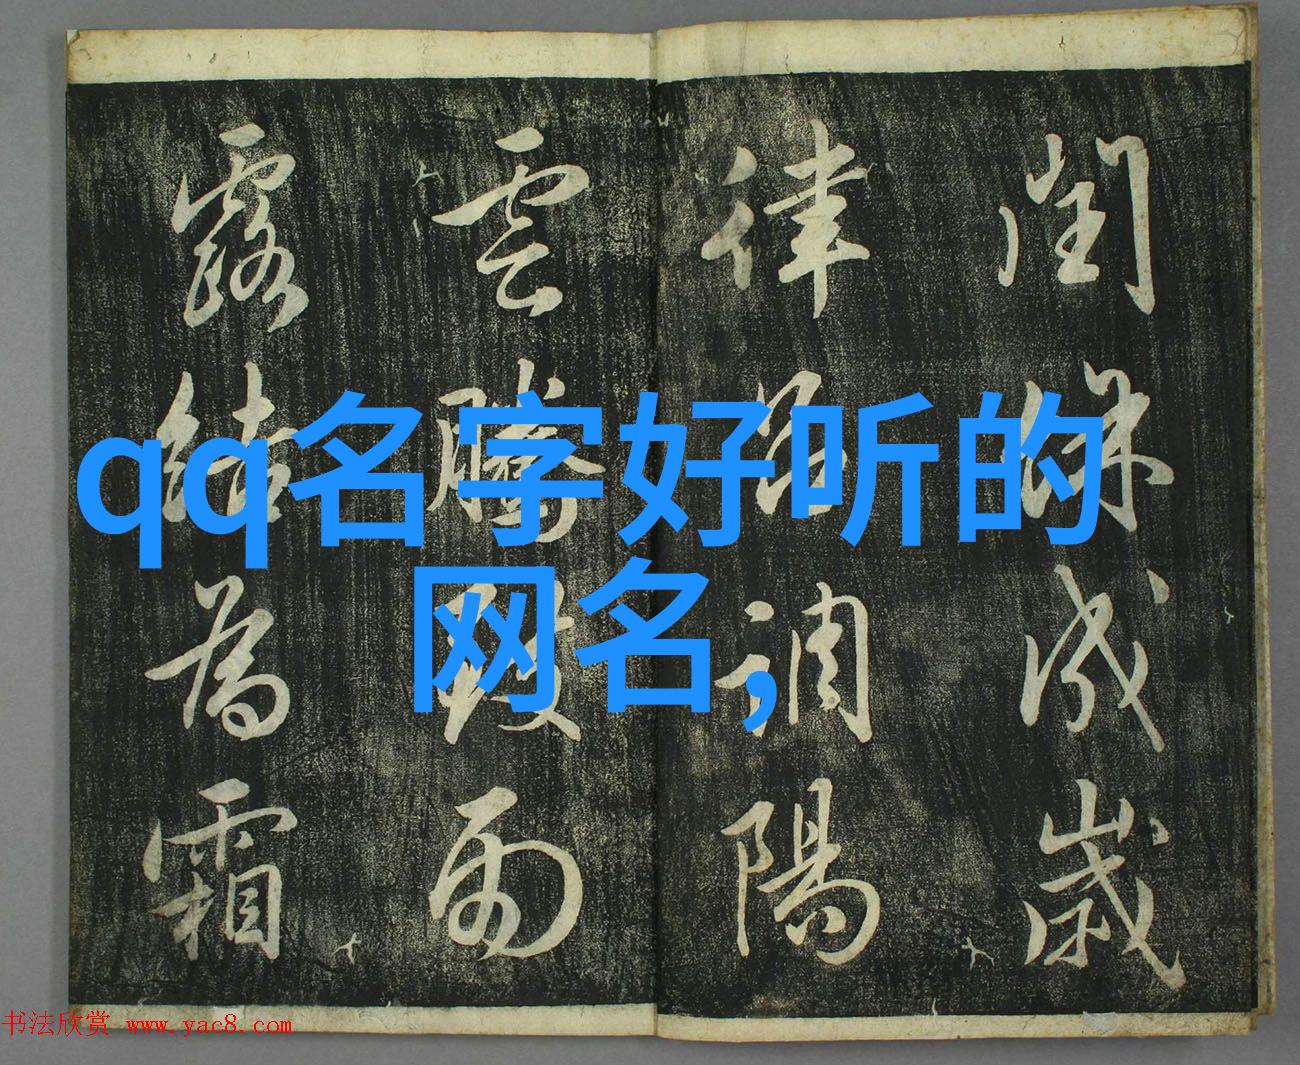 閏餘成歲
律呂調陽
雲騰致雨
露結為霜
qq名字好听的
网名,
书法欣赏 www.yac8.com